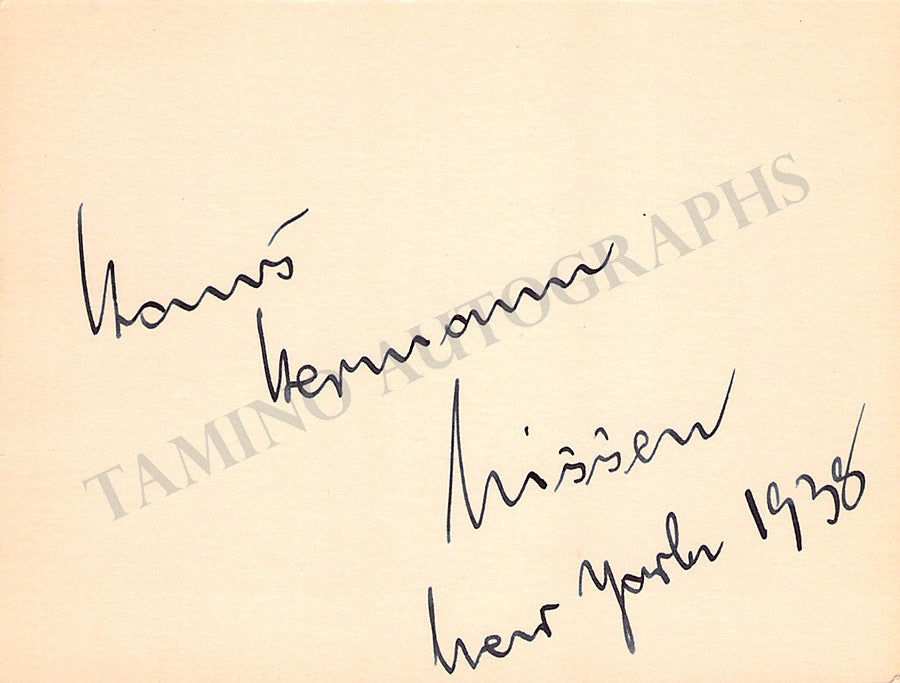 Hans
Hermann
Nissen
New York 1938
TAMINO AUTOGRAPHS